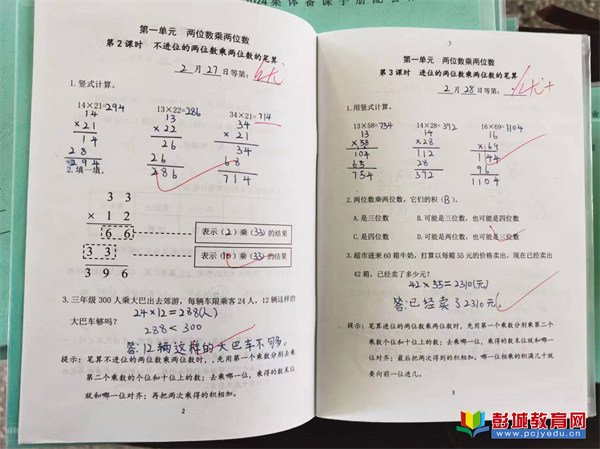 第一单元 两位数乘两位数
第2课时 不进位的两位数乘两位数的笔算
2月27日等第:优
1.竖式计算。
14×21=294 13×22=286 34×21=714
14 13 34
×21 ×22 ×21
14 26 34
28 26 68
294 286 714
2.填一填。
3 3
× 1 2
6 6 表示(2)乘(33)的结果
3 3 表示(10)乘(33)的结果
3 9 6
3.三年级300人乘大巴出去郊游,每辆车限乘客24人,12辆这样的
大巴车够吗?
24×12=288(人)
288<300
答:12辆这样的大巴车不够。
提示:笔算不进位的两位数乘两位数时,,先用第一个乘数分别去乘
第二个乘数的个位和十位上的数;去乘哪一位,乘得的数末位
就和哪一位对齐;再把两次乘得的积相加。
2
3
第一单元 两位数乘两位数
第3课时 进位的两位数乘两位数的笔算
2月28日等第:优+
1.用竖式计算。
13×58=754 14×28=392 16×69=1104
13 14 16
×58 ×28 ×69
104 112 144
65 28 96
754 392 1104
2.两位数乘两位数,它们的积(B)。
A.是三位数 B.可能是三位数,也可能是四位数
C.是四位数 D.可能是两位数,也可能是三位数
3.超市进来60箱牛奶,打算以每箱55元的价格卖出,现在已经卖出
42箱,已经卖了多少元?
42×55=2310(元)
答:已经卖了2310元。
提示:笔算进位的两位数乘两位数时,先用第一个乘数分别乘第二个
乘数个位和十位上的数;去乘哪一位,乘得的数末位就和哪一
位对齐;最后把两次得到的积相加。哪一位相乘的积满几十就
要向前一位进几。
3
彭城教育网
www.pcjyedu.cn